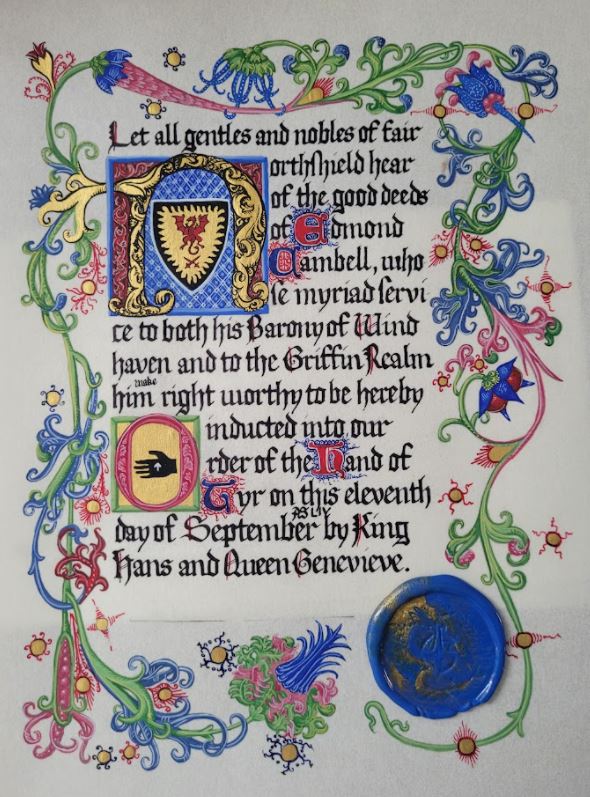 Let all gentles and nobles of fair
Northſhield hear
of the good deeds
of Edmond
Cambell, who
ſe myriad ſervi
ce to both his Barony of Wind
haven and to the Griffin Realm
make
him right worthy to be hereby
inducted into our
Order of the Hand of
Tyr on this eleventh
AS LIV
day of September by King
Hans and Queen Genevieve.